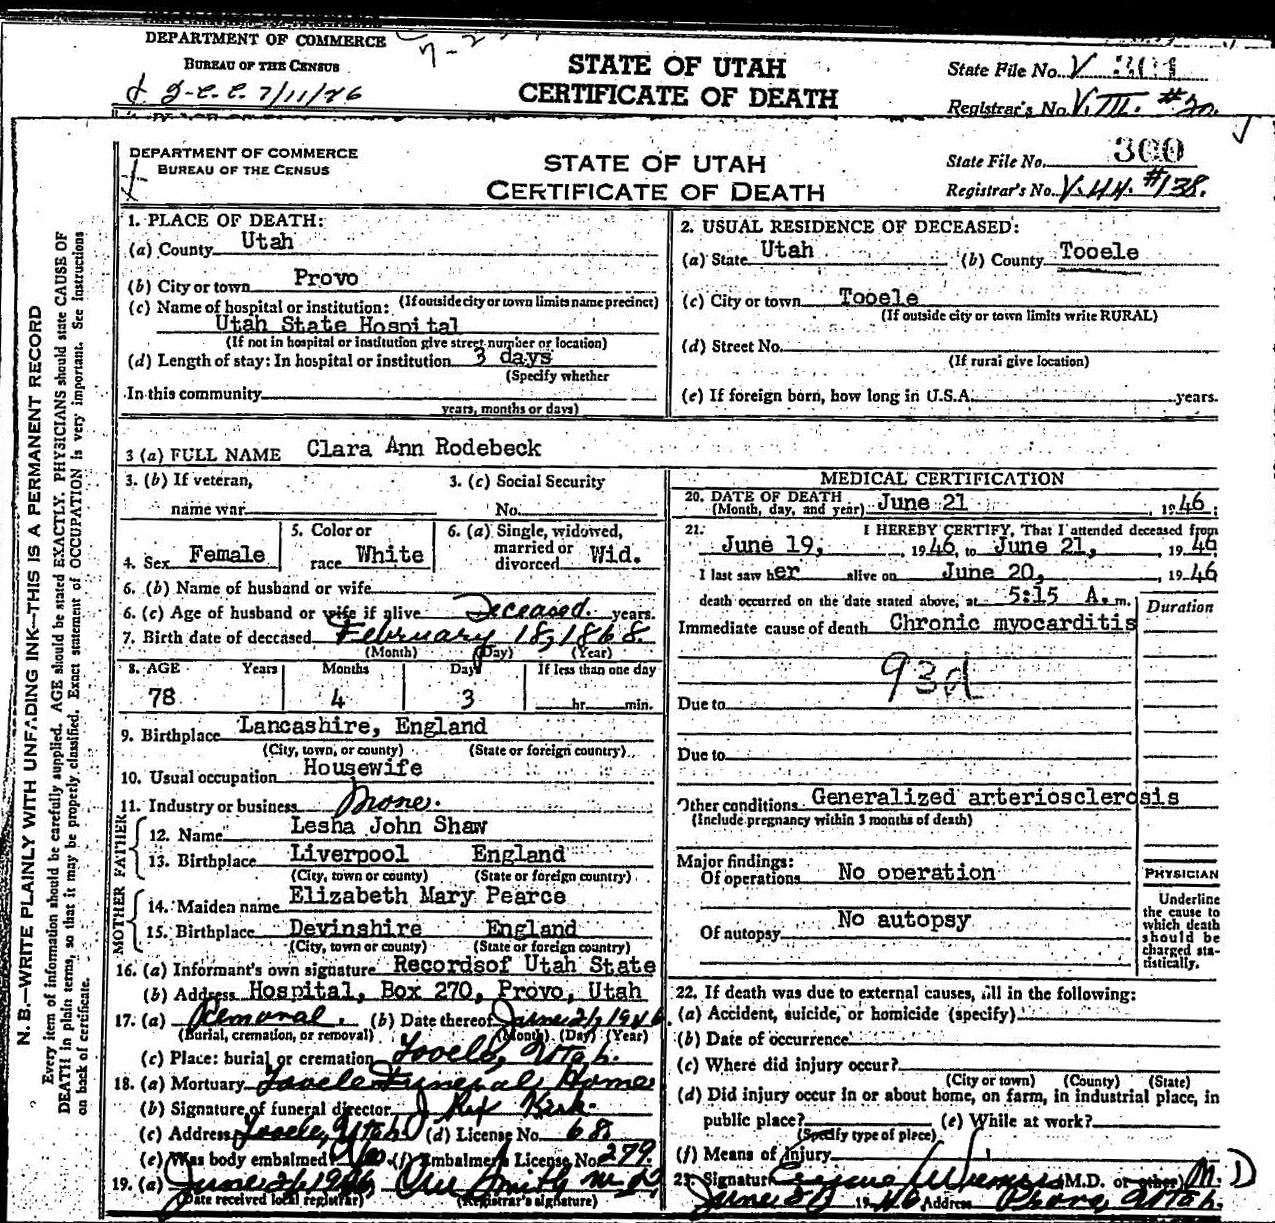 DEPARTMENT OF COMMERCE
BUREAU OF THE CENSUS
7/11/26
STATE OF UTAH
CERTIFICATE OF DEATH
State File No. V 301
Registrar's No. V.III. #20.
DEPARTMENT OF COMMERCE
BUREAU OF THE CENSUS
STATE OF UTAH
CERTIFICATE OF DEATH
State File No. 300
Registrar's No. V.44. #138.
N. B.—WRITE PLAINLY WITH UNFADING INK—THIS IS A PERMANENT RECORD
Every item of information should be carefully supplied. AGE should be stated EXACTLY. PHYSICIANS should state CAUSE OF
DEATH in plain terms, so that it may be properly classified. Exact statement of OCCUPATION is very important. See instructions
on back of certificate.
1. PLACE OF DEATH:
(a) County Utah
(b) City or town Provo
(If outside city or town limits name precinct)
(c) Name of hospital or institution:
Utah State Hospital
(If not in hospital or institution give street number or location)
(d) Length of stay: In hospital or institution 3 days
(Specify whether
In this community
years, months or days)
2. USUAL RESIDENCE OF DECEASED:
(a) State Utah (b) County Tooele
(c) City or town Tooele
(If outside city or town limits write RURAL)
(d) Street No.
(If rural give location)
(e) If foreign born, how long in U.S.A. years.
3 (a) FULL NAME Clara Ann Rodebeck
3. (b) If veteran,
name war
3. (c) Social Security
No.
4. Sex Female
5. Color or
race White
6. (a) Single, widowed,
married or
divorced Wid.
6. (b) Name of husband or wife
6. (c) Age of husband or wife if alive Deceased. years.
7. Birth date of deceased February 18, 1868
(Month) (Day) (Year)
8. AGE Years Months Days If less than one day
78 4 3 hr. min.
9. Birthplace Lancashire, England
(City, town, or county) (State or foreign country)
10. Usual occupation Housewife
11. Industry or business None.
FATHER
12. Name Lesha John Shaw
13. Birthplace Liverpool England
(City, town or county) (State or foreign country)
MOTHER
14. Maiden name Elizabeth Mary Pearce
15. Birthplace Devinshire England
(City, town or county) (State or foreign country)
16. (a) Informant's own signature Recordsof Utah State
(b) Address Hospital, Box 270, Provo, Utah
17. (a) Removal. (b) Date thereof June 21, 1946
(Burial, cremation, or removal) (Month) (Day) (Year)
(c) Place: burial or cremation Tooele, Utah.
18. (a) Mortuary Tooele Funeral Home
(b) Signature of funeral director J Rex Kirk.
(c) Address Tooele, Utah (d) License No. 68.
(e) Was body embalmed Yes. (f) Embalmers License No. 279.
19. (a) June 21, 1946 Smith M.D
(Date received local registrar) (Registrar's signature)
MEDICAL CERTIFICATION
20. DATE OF DEATH
(Month, day, and year) June 21 1946
21. I HEREBY CERTIFY, That I attended deceased from
June 19, 1946, to June 21, 1946
I last saw her alive on June 20, 1946
death occurred on the date stated above, at 5:15 A. m.
Duration
Immediate cause of death Chronic myocarditis
93d
Due to
Due to
Other conditions Generalized arteriosclerosis
(Include pregnancy within 3 months of death)
Major findings:
Of operations No operation
Of autopsy No autopsy
PHYSICIAN
Underline
the cause to
which death
should be
charged sta-
tistically.
22. If death was due to external causes, fill in the following:
(a) Accident, suicide, or homicide (specify)
(b) Date of occurrence
(c) Where did injury occur?
(City or town) (County) (State)
(d) Did injury occur in or about home, on farm, in industrial place, in
public place? (e) While at work?
(Specify type of place)
(f) Means of Injury
23. Signature M.D. or other M. D
June 21 1946 Address Provo, Utah.